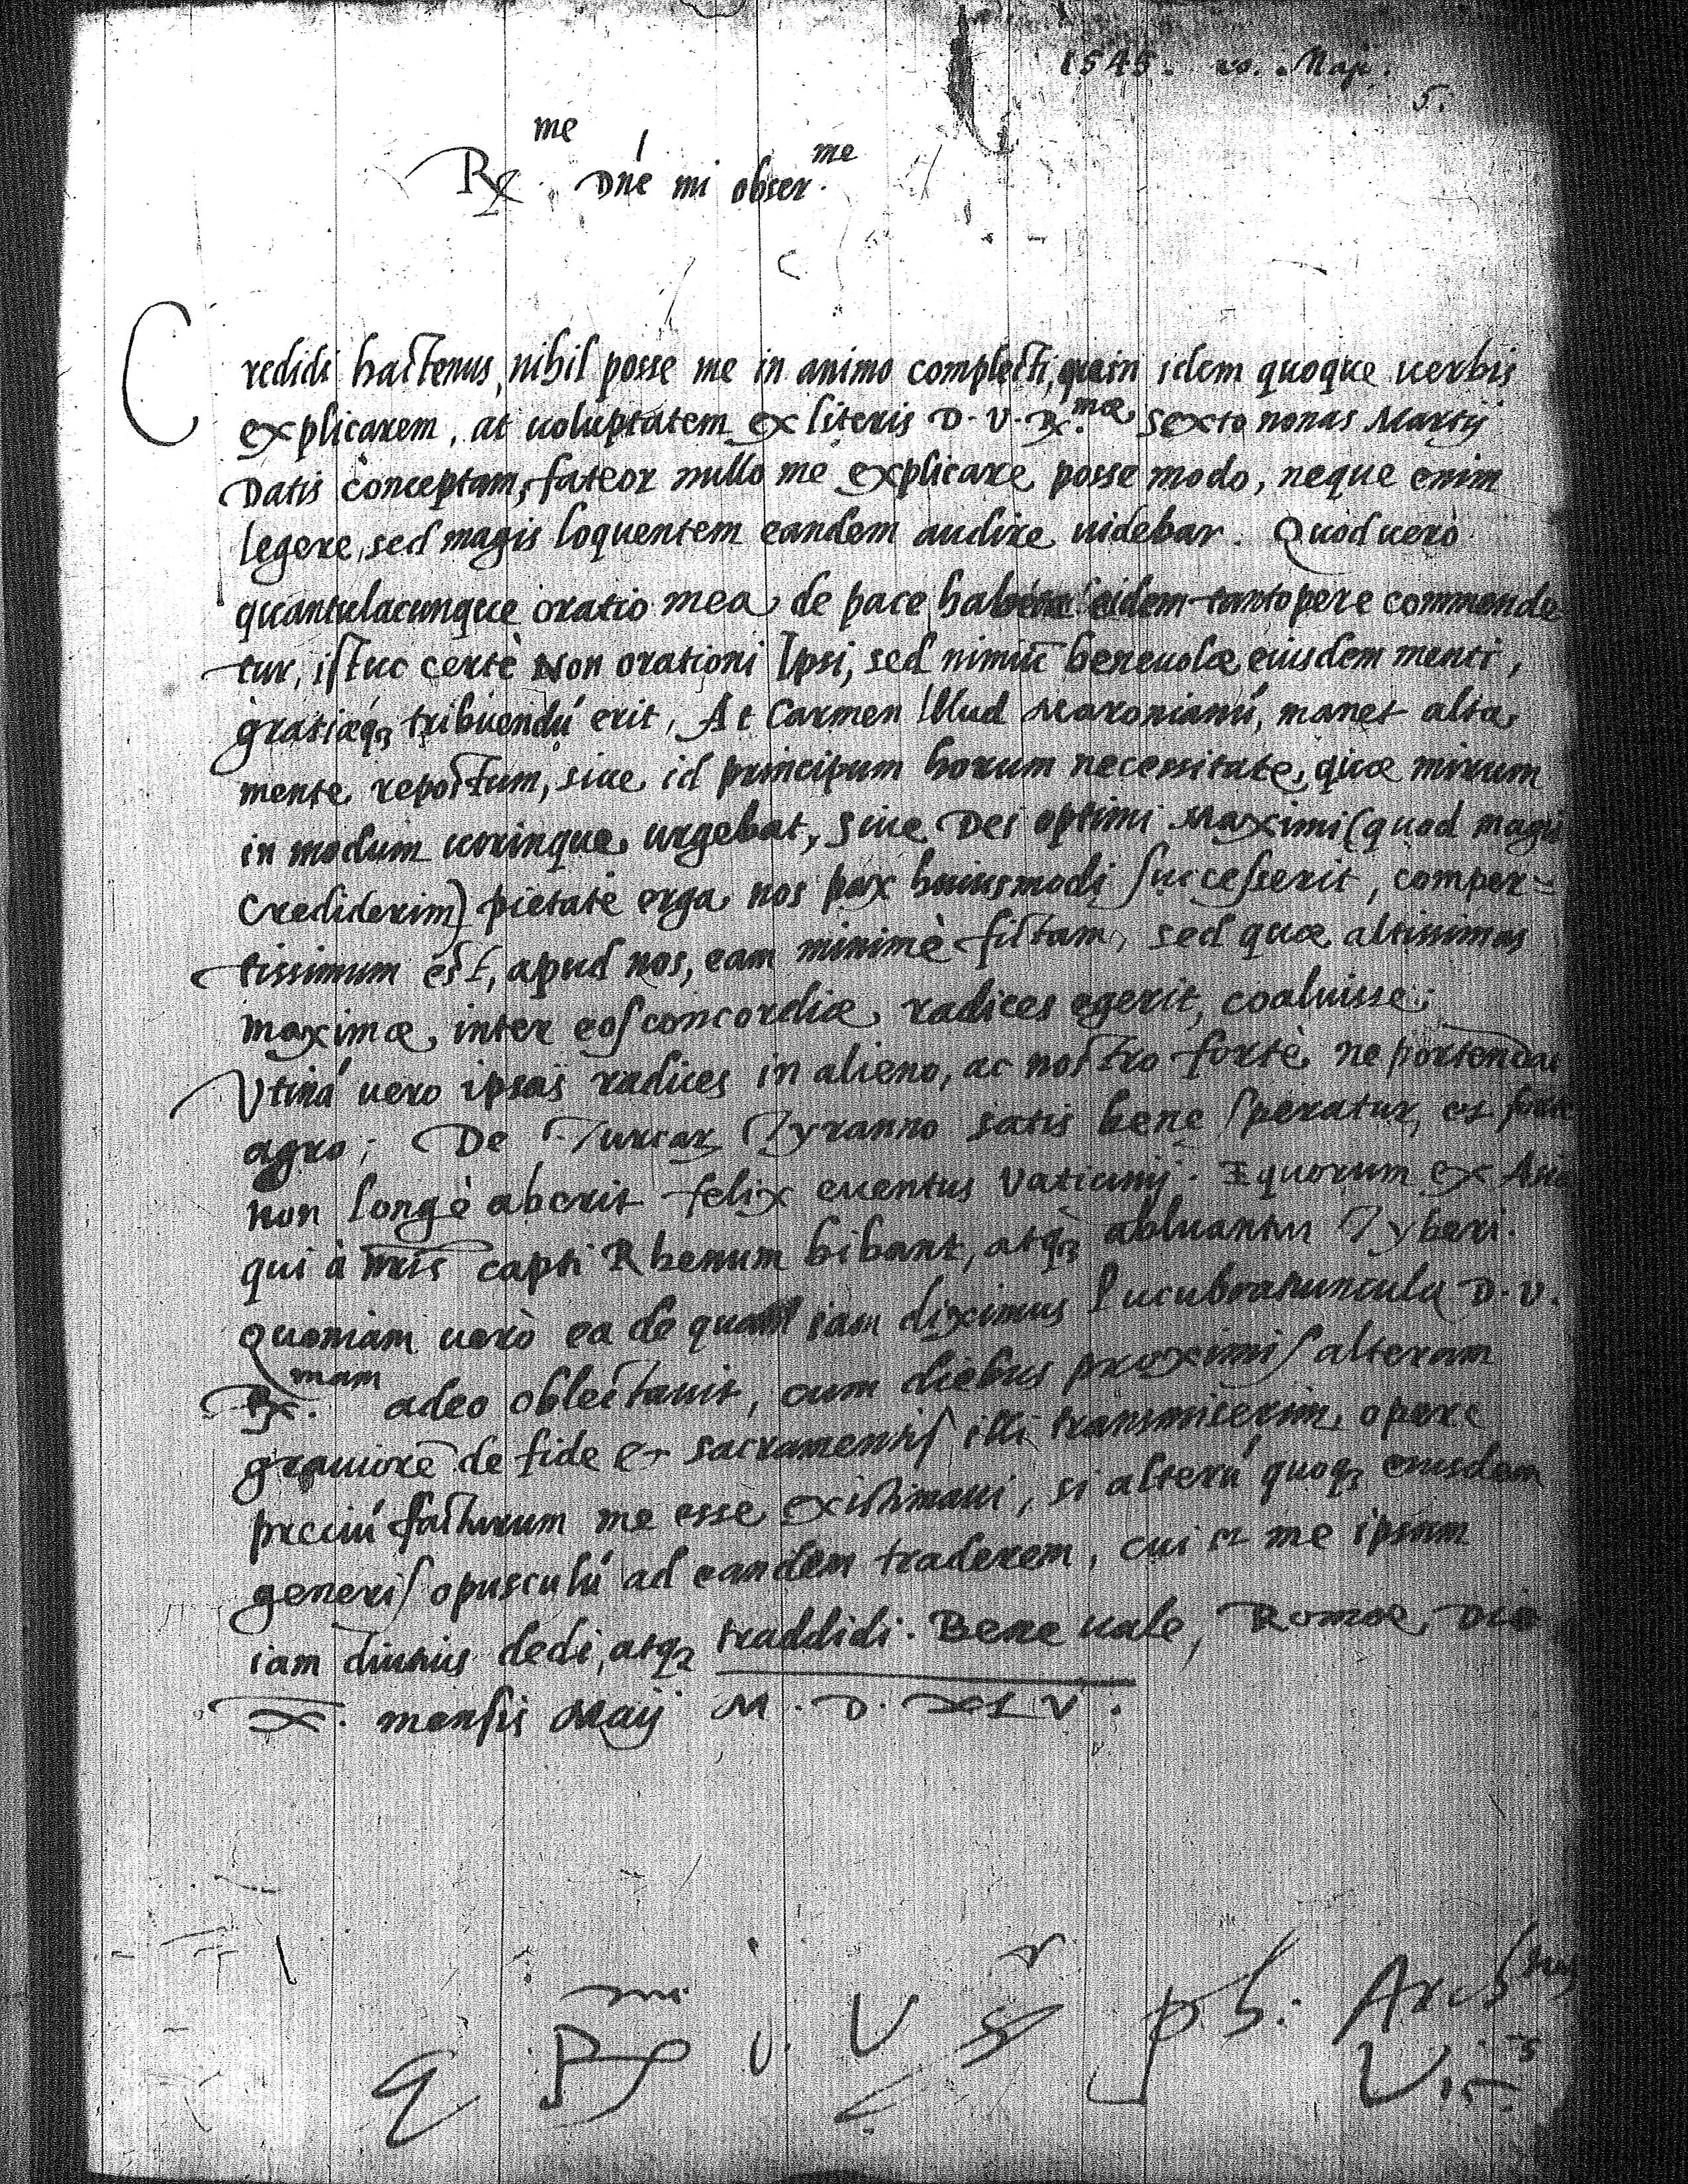 1545. 10. Maji.
5.
R.me Dne mi obser.me
Credidi hactenus, nihil posse me in animo complecti, quin idem quoque uerbis
explicarem, at uoluptatem ex literis D. V. R.mae sexto nonas Martij
Datis conceptam, fateor nullo me explicare posse modo, neque enim
legere, sed magis loquentem eandem audire uidebar. Quod uerò
quantulacunque oratio mea de pace habita eidem tantopere commende
tur, istuc certè Non orationi Ipsi, sed nimiũ beneuolæ eiusdem menti,
gratiæq3 tribuendú erit, At Carmen illud Maronianú, manet alta
mente repostum, siue id principum horum necessitate, quæ mirum
in modum utrinque urgebat, siue Dei optimi Maximi (quod magis
Crediderim) pietate erga nos pax huiusmodi successerit, comper=
tissimum est, apud nos, eam minimè fictam, sed quæ altissimas
maximæ inter eos concordiæ radices egerit, coaluisse;
Vtiná uero ipsas radices in alieno, ac nostro fortè ne portendat
agro; De Turcar Tyranno satis bene speratur, et forte
non longè aberit felix euentus Vaticinij. Equorum ex Asia
qui à nr̃is capti Rhenum bibant, atq3 abluantur Tyberi.
Quoniam uerò ea de qua iam diximus lucubratiuncula D. V.
R.mam adeo oblectauit, cum diebus proximis alteram
grauiorẽ de fide et sacramentis illi transmiserim, opere
preciú facturum me esse existimaui, si alterú quoq3 eiusdem
generis opusculú ad eandem traderem, cui et me ipsum
iam diutius dedi, atq3 traddidi. Bene uale, Romæ Die
X. mensis Maij M. D. XLV.